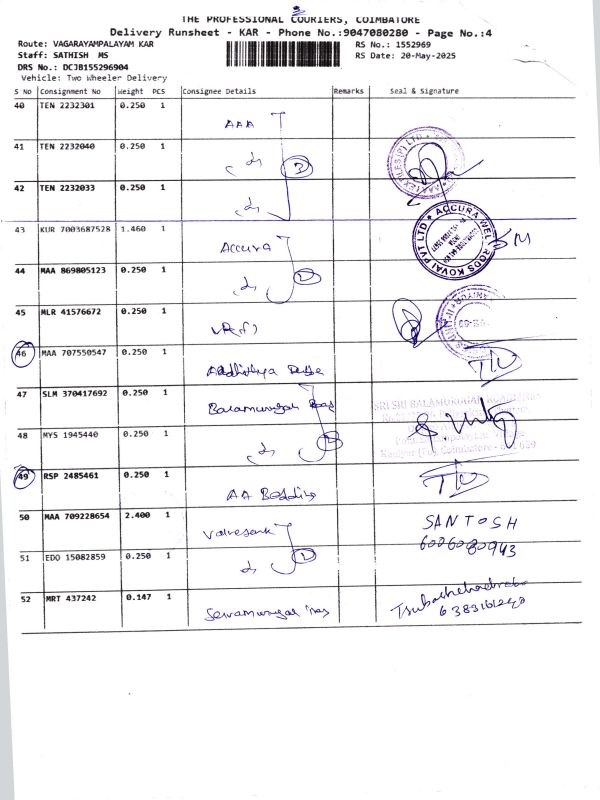 THE PROFESSIONAL COURIERS, COIMBATORE
Delivery Runsheet - KAR - Phone No.:9047080280 - Page No.:4
Route: VAGARAYAMPALAYAM KAR
RS No.: 1552969
Staff: SATHISH MS
RS Date: 20-May-2025
DRS No.: DCJB155296904
Vehicle: Two Wheeler Delivery
S No Consignment No Weight PCS Consignee Details Remarks Seal & Signature
40 TEN 2232301 0.250 1
AAA
41 TEN 2232040 0.250 1
3
42 TEN 2232033 0.250 1
43 KUR 7003687528 1.460 1
Accura
ACCURA WEL RODS KOVAI PVT LTD
44 MAA 869805123 0.250 1
2
45 MLR 41576672 0.250 1
46 MAA 707550547 0.250 1
47 SLM 370417692 0.250 1
Balamurugan
SRI SRI BALAMURUGAN
48 MYS 1945440 0.250 1
2
49 RSP 2485461 0.250 1
AA Bedding
50 MAA 709228654 2.400 1
SANTOSH
6006080943
51 EDO 15082859 0.250 1
2
52 MRT 437242 0.147 1